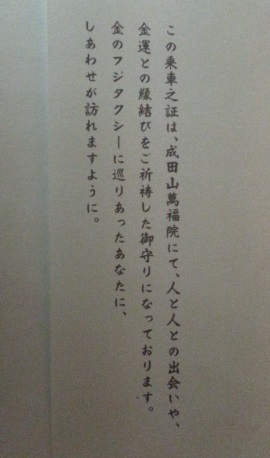 この乗車之証は、成田山萬福院にて、人と人との出会いや、
金運との縁結びをご祈祷した御守りになっております。
金のフジタクシーに巡りあったあなたに、
しあわせが訪れますように。